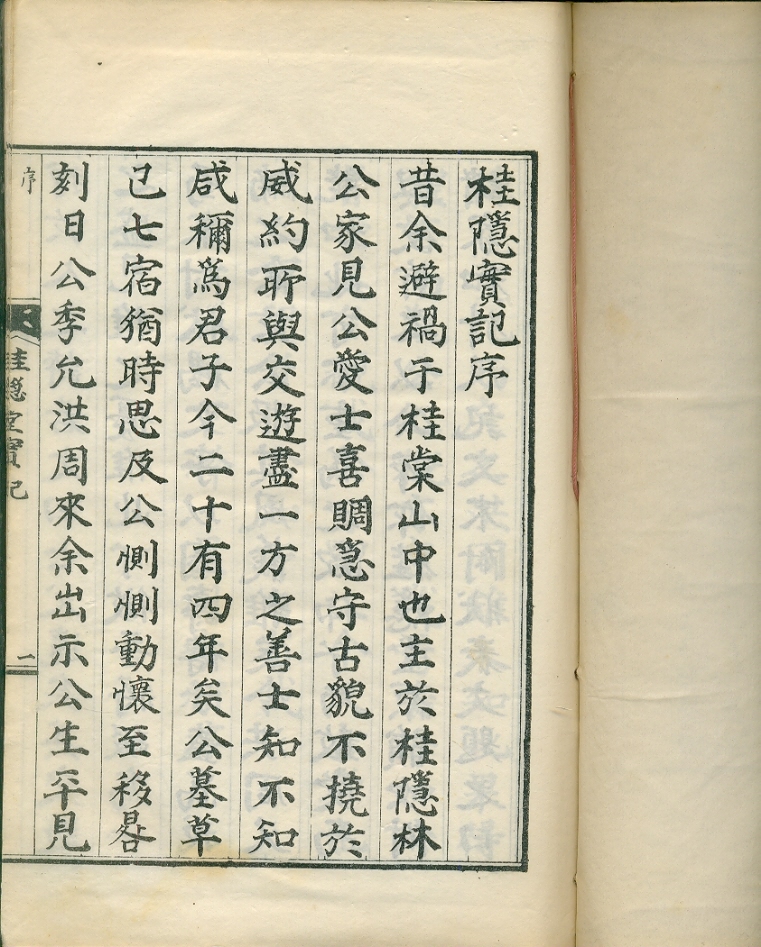 桂隱實記序
昔余避禍于桂棠山中也主於桂隱林
公家見公愛士喜賙急守古貌不撓於
威約所與交遊盡一方之善士知不知
咸稱爲君子今二十有四年矣公墓草
已七宿猶時思及公惻惻動懷至移晷
刻日公季允洪周來余出示公生平見
序
桂隱堂實記
一